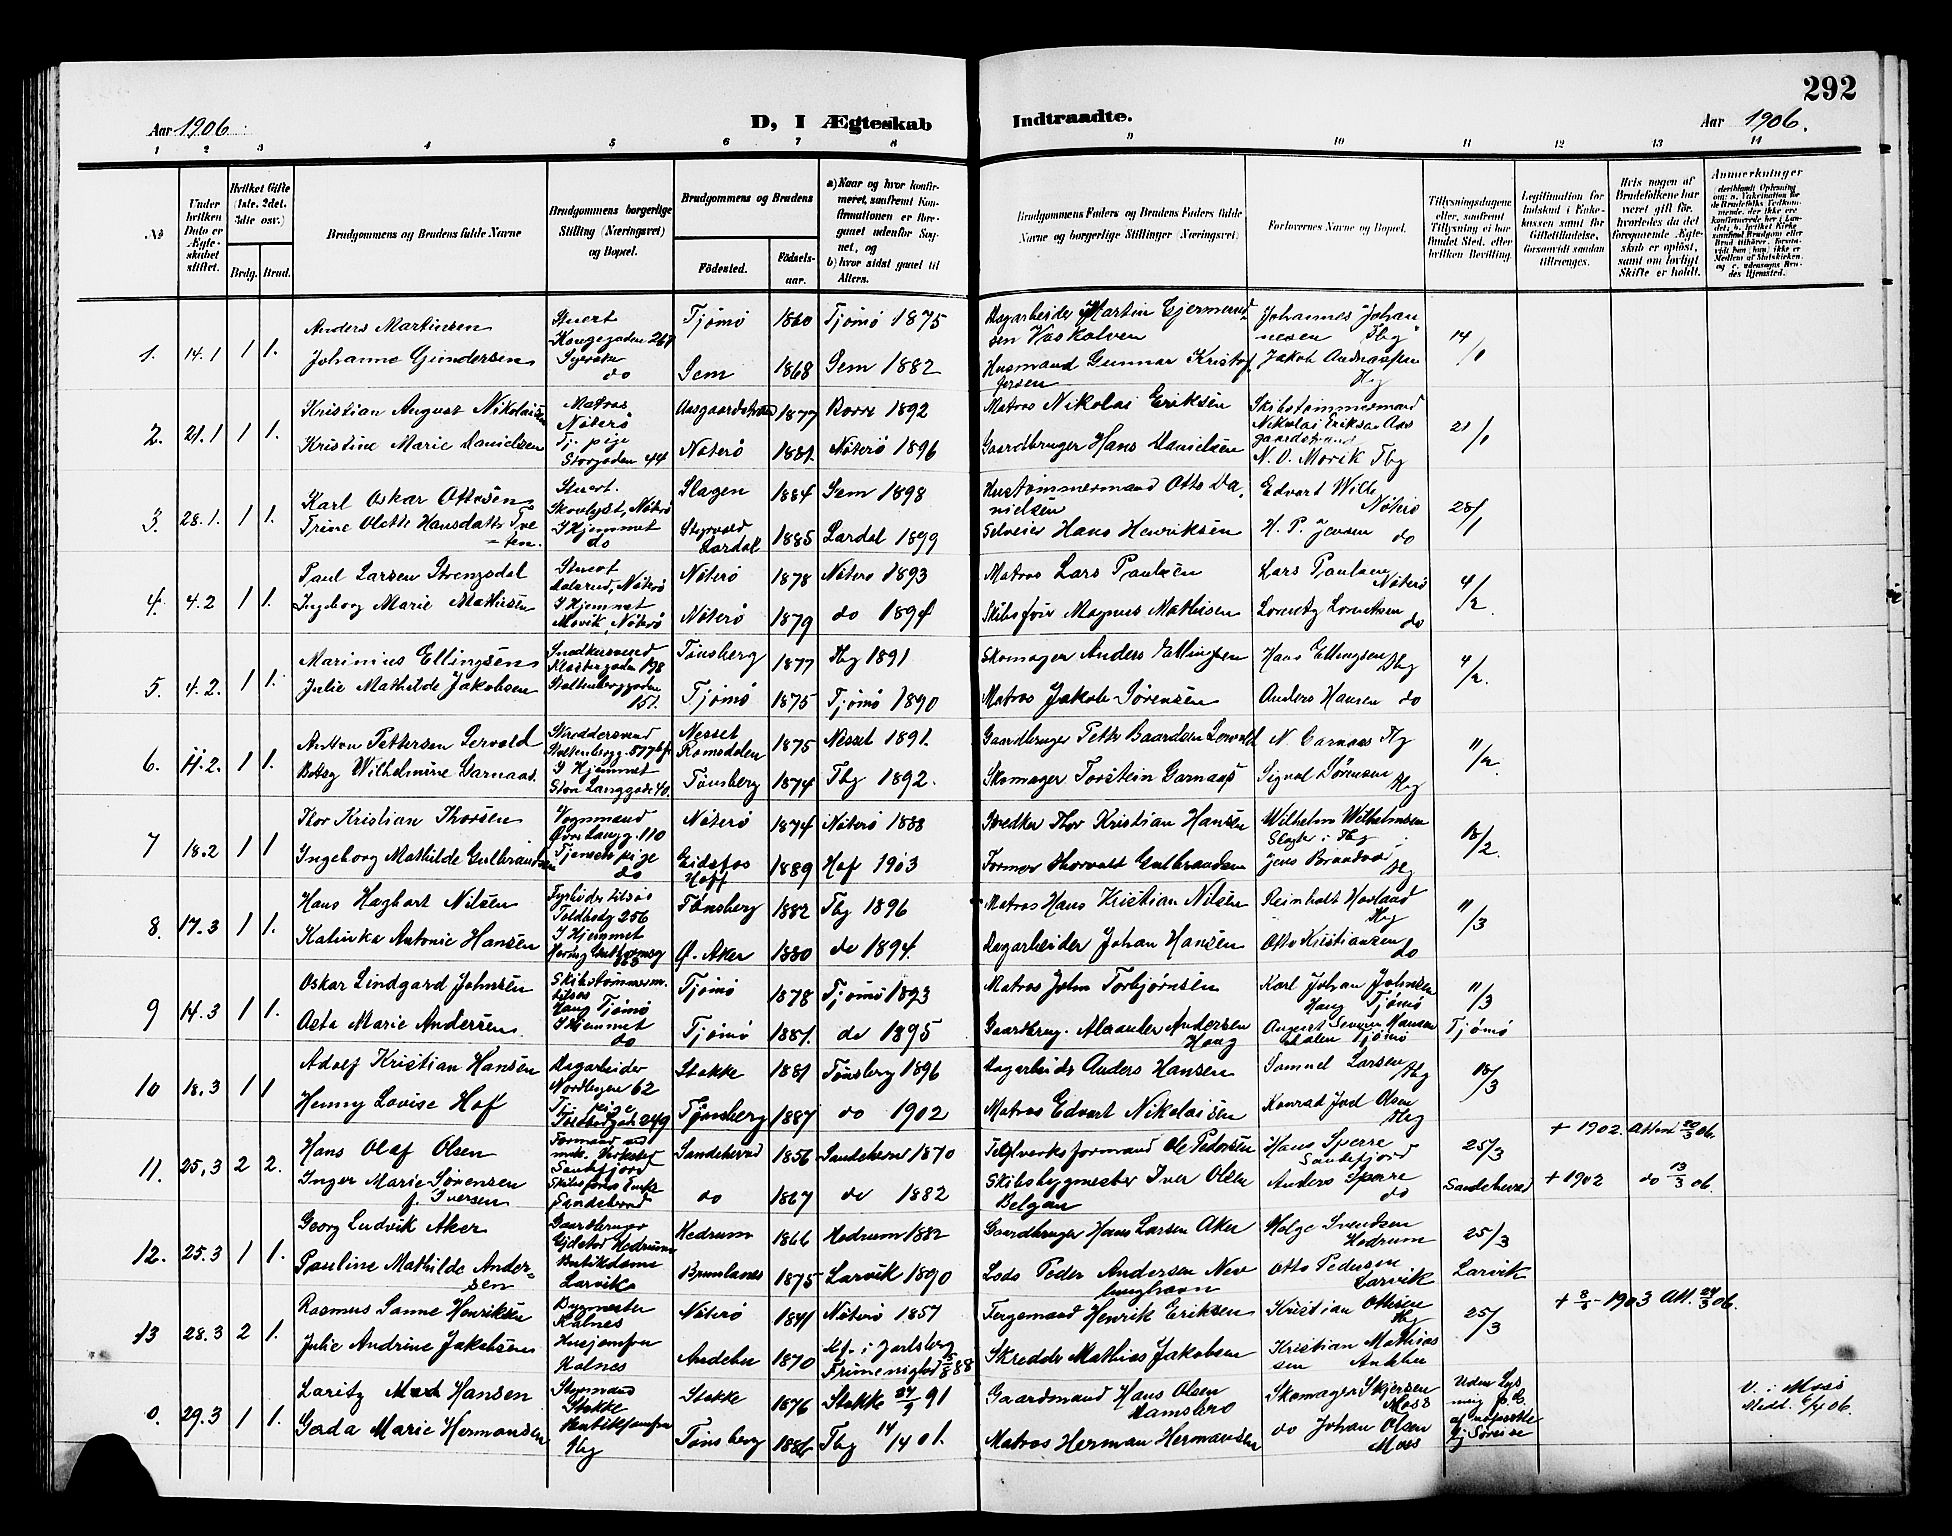 292
Aar 1906. D, I Ægteskab Indtraadte. Aar 1906.
1 2 3 4 5 6 7 8 9 10 11 12 13 14
№
Under hvilken Dato er Ægteskabet stiftet.
Hvilket Gifte (1ste, 2det, 3die osv.)
Brdg. Brud.
Brudgommens og Brudens fulde Navne
Brudgommens borgerlige Stilling (Næringsvei) og Bopæl.
Brudgommens og Brudens
Födested. Födselsaar.
a) Naar og hvor konfirmeret, samt om Konfirmationen er foregaaet udenfor Sognet, og
b) hvor sidst gaaet til Alters.
Brudgommens Faders og Brudens Faders fulde Navne og borgerlige Stillinger (Næringsvei)
Forlovernes Navne og Bopæl.
Tillysningsdagene eller, saafremt Tillysning ei har fundet Sted, efter hvilken Bevilling.
Legitimation for Indskud i Enkekassen samt for Giftetilladelse, forsaavidt saadan tiltrænges.
Hvis nogen af Brudefolkene har været gift før, hvorledes da det foregaaende Ægteskab er opløst, samt om lovligt Skifte er holdt.
Anmerkninger
1. 14.1 1 1.
Anders Martinsen
Stuert Kongegaden 267
Tjømø 1860 Tjømø 1875
Dagarbeider Martin Gjermundsen
Johannes Johannesen Tbg
14/1
Johanne Gundersen
Syerske do
Sem 1868 Sem 1882
Husmand Gunnar Kristofersen
Jakob Andreassen Tbg
2. 21.1 1 1.
Kristian August Nikolaisen
Matros Nøterø
Aasgaardstrand 1877 Borre 1892
Matros Nikolai Eriksen
Skibstømmermand Nikolai Eriksen Aasgaardstrand
21/1
Kristine Marie Danielsen
Tj. pige Storgaden 44
Nøterø 1881. Nøterø 1896
Gaardbruger Hans Danielsen
Tbg
3. 28.1. 1 1.
Karl Oskar Ottesen
Stuert. Skovlyst, Nøterø
Slagen 1884 Sem 1898
Hustømmermand Otto Danielsen
Edvart Wile Nøterø
28/1
Trine Olette Hansdatter Tveten.
I Hjemmet do
Styrvold Lardal 1885 Lardal 1899
Selveier Hans Henriksen
H. P. Jensen do
4. 4.2 1 1.
Paul Larsen Strengsdal
Stuert Nøterø
Nøterø 1878 Nøterø 1893
Matros Lars Paulsen
Lars Paulsen Nøterø
4/2.
Ingeborg Marie Mathisen
I Hjemmet Movik, Nøterø
Nøterø 1879 do 1894
Skibsfør. Magnus Mathisen
Lorentz Lorentsen do
5. 4.2. 1 1.
Marinius Ellingsen
Snedkersvend Klostergaden 198
Tønsberg 1877 Tbg 1891
Skomager Anders Ellingsen
Hans Ellingsen Tbg
4/2.
Julie Mathilde Jakobsen
Stoltenberggaden 151.
Tjømø 1875 Tjømø 1890
Matros Jakob Sørensen
Anders Hansen do
6. 11.2. 1 1.
Anton Pettersen Lervold
Skreddersvend
Nesset Romsdalen 1875 Nesset 1891.
Gaardbruger Petter Baardsen Lervold
N. Garnaas Tbg
11/2.
Betsy Wilhelmine Garnaas.
I Hjemmet Store Langgade 40.
Tønsberg 1874 Tbg 1892.
Skomager Torstein Garnaas
Signal Sørensen Tbg
7 18.2 1 1
Thor Kristian Thorsen
Vognmand Øvre Langg. 110
Nøterø 1874 Nøterø 1888
Thor Kristian Hansen
Wilhelm Wilhelmsen Tbg
18/2
Ingeborg Mathilde Gulbrandsen
Tjenestepige do
Eidsfos Hoff 1889 Hof 1903
Former Thorvald Gulbrandsen
Tbg
8. 17.3 1 1.
Hans Hagbart Nilsen
Fyrbøder tilsøs Toldbodg 256
Tønsberg 1882 Tbg 1896
Matros Hans Kristian Nilsen
Reinholt Tbg
11/3
Katinka Antonie Hansen
I Hjemmet
Ø. Aker 1880 do 1894.
Dagarbeider Johan Hansen
Otto Kristiansen do
9 14.3 1 1.
Oskar Lindgard Johnsen
Skibstømmerm. tilsøs Haug Tjømø
Tjømø 1878 Tjømø 1893
Matros John Torbjørnsen
Karl Johan Johnsen Haug Tjømø
11/3
Asta Marie Andersen
I Hjemmet do
Tjømø 1881. do 1895
Gaardbrug. Andersen Haug
August Severin Hansen Tjømø
Tjømø
10 18.3 1 1
Adolf Kristian Hansen
Dagarbeider Nordbyen 62
Stokke 1881 Tønsberg 1896
Dagarbeider Anders Hansen
Samuel Larsen Tbg
18/3
Henny Lovise Hof
Tj. pige Toldbodgade 249
Tønsberg 1887 do 1902
Matros Edvart Nikolaisen
Konrad Olsen Tbg
11. 25.3 2 2.
Hans Olaf Olsen
Formand ved mek. Verksted Sandefjord
Sandeherred 1856 Sandeherred 1870
formand Ole Pedersen
Hans Sperre Sandefjord
25/3
+ 1902. Attest 20/3 06.
Inger Marie Sørensen f. Iversen
Sandeherred
do 1867 do 1882
Skibsbygmester Iver Olsen
Anders Sperre do
Sandeherred
+ 1902 do 13/3 06.
12. 25.3 1 1.
Georg Ludvik Aker
Gaardbruger Hedrum
Hedrum 1866 Hedrum 1882
Gaardbruger Hans Larsen Aker
Helge Svendsen Hedrum
25/3
Pauline Mathilde Andersen
Butikdame Larvik
Brunlanes 1875 Larvik 1890
Lods Peder Andersen Nevlunghavn
Otto Pedersen Larvik
Larvik
13 28.3 2 1.
Rasmus Sanne Henriksen
Bygmester Kalnes
Nøterø 1841 Nøterø 1857
Fergemand Henrik Eriksen
Kristian Ottesen Tbg
25/3
+ 8/8 - 1903 Att. 24/3 06.
Julie Andrine Jakobsen
Husjomfru Kalnes
Andebu 1870 i Jarlsberg Frimenighed 88
Skredder Mathias Jakobsen
Kristian Mathiassen Andebu
0. 29.3 1 1.
Laritz Hansen
Styrmand Stokke
Stokke 1876 Stokke 27/9 91
Gaardmand Hans Olsen
Skomager Skjersen Moss
Uden Lysning p. G. af
V. i Moss Medd. 6/4 06.
Gerda Marie Hermansen
Butikjomfru Tbg
Tønsberg 1886 Tbg 14/4 01.
Matros Herman Hermansen
do Johan Olsen Moss